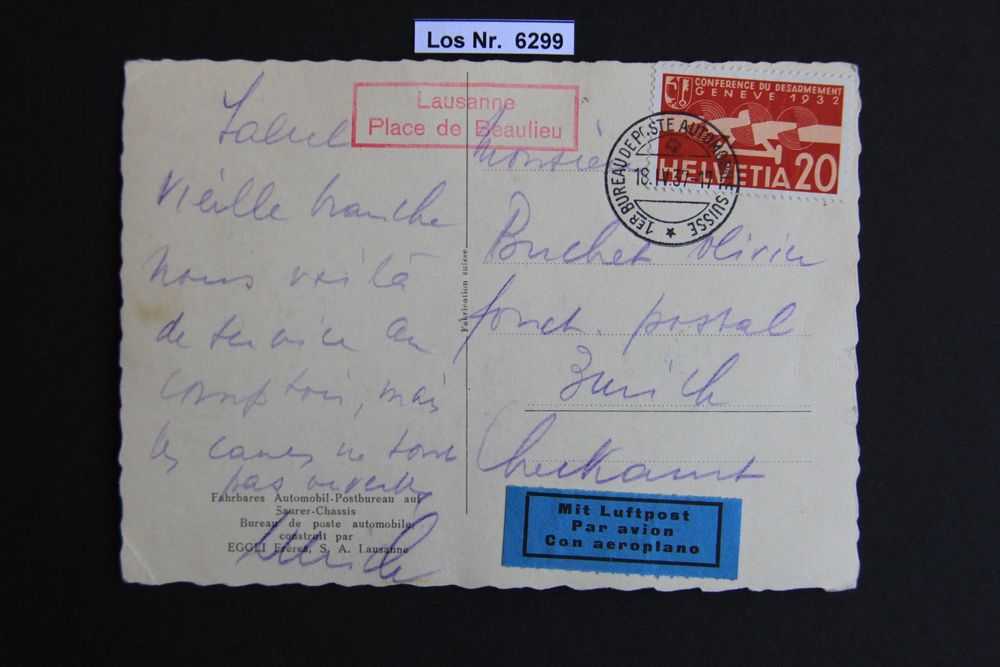 Los Nr. 6299
Lausanne
Place de Beaulieu
CONFERENCE DU DESARMEMENT
GENEVE 1932
HELVETIA 20
1ER BUREAU DE POSTE AUTOMOBILE SUISSE
Salut
vieille branche
nous voilà
de service au
comptoir, mais
les caves ne sont
pas ouvertes
Ulrich
Fahrbares Automobil-Postbureau auf
Saurer-Chassis
Bureau de poste automobile,
construit par
EGGLI Frères, S. A. Lausanne
Fabrication suisse
Monsieur
Buchet Olivier
fonct. postal
Zurich
Checkamt
Mit Luftpost
Par avion
Con aeroplano